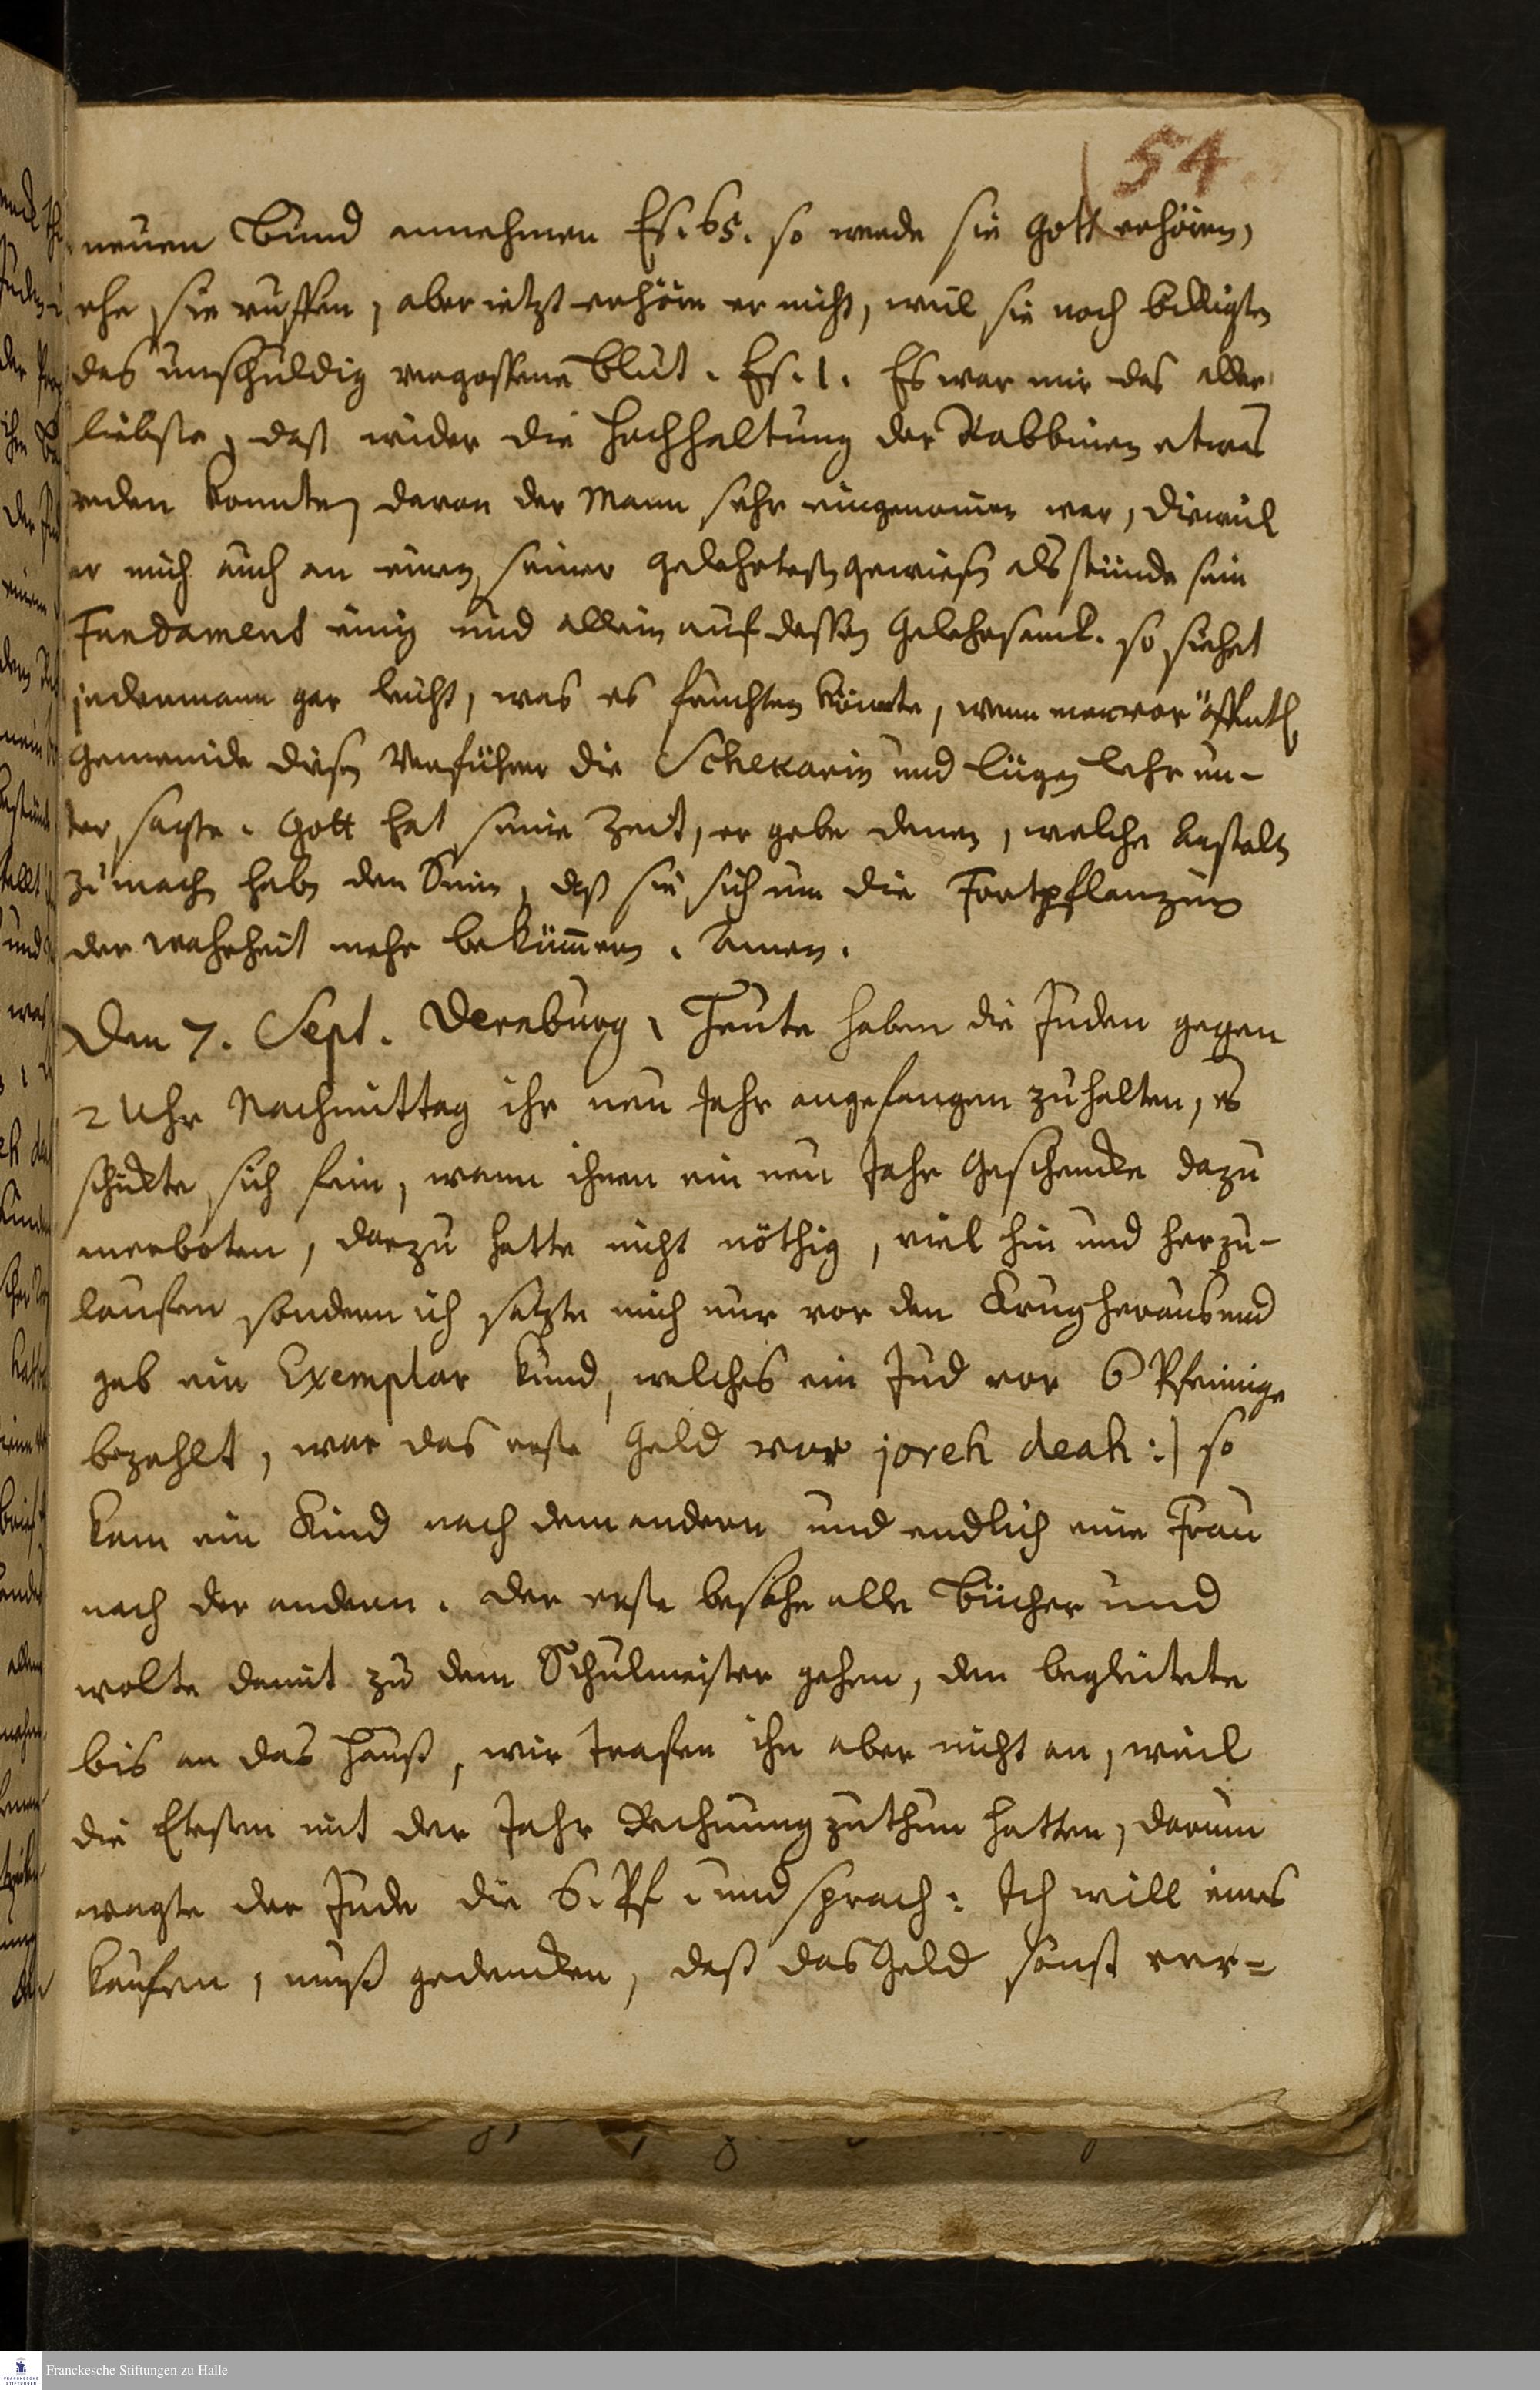 54
neuen Bund annehmen Es. 65. so werde sie Gott erhören,
ehe sie ruffen, aber ietzt erhöre er nicht, weil sie noch billigten
das unschuldig vergossene Blut. Es. 1. Es war mir das aller
liebste, daß wider die Hochhaltung der Rabbinen etwas
reden konnte, davon der Mann sehr eingenommen war, dieweil
er mich auch an einen seiner gelehrtesten gewiesen als stünde sein
Fundament einig und allein auf dessen Gelehrsamk. so siehet
jederman gar leicht, was es fruchten könnte, wenn man vor öffentl.
Gemeinde diesen Verführer die Schekarim und Lügen lehr un-
ter sagte. Gott hat seine Zeit, er gebe denen, welche Anstalten
zu machen haben den Sinn, daß sie sich um die Fortpflanzung
der Wahrheit mehr bekümmern. Amen.
Den 7. Sept. Derenburg. Heute haben die Juden gegen
2 Uhr Nachmittag ihr neu Jahr angefangen zu halten, es
schickte sich fein, wann ihnen ein neu Jahr Geschencke dazu
anerboten, darzu hatte nicht nöthig, viel hin und herzu-
lauffen sondern ich setzte mich nur vor den Krug heraus und
gab ein Exemplar kund, welches ein Jud vor 6 Pfennige
bezahlt, war das erste Geld vor joreh deah :) so
kam ein Kind nach dem andern und endlich eine Frau
nach der andern. Der erste besahe alle Bücher und
wolte damit zu dem Schulmeister gehen, den begleitete
bis an das Hauß, wir trafen ihn aber nicht an, weil
die Eltesten mit der Jahr Rechnung zu thun hatten, darum
wagte der Jude die 6. Pf. und sprach: Ich will eines
kauffen, muß gedencken, daß das Geld sonst ver-
Franckesche Stiftungen zu Halle